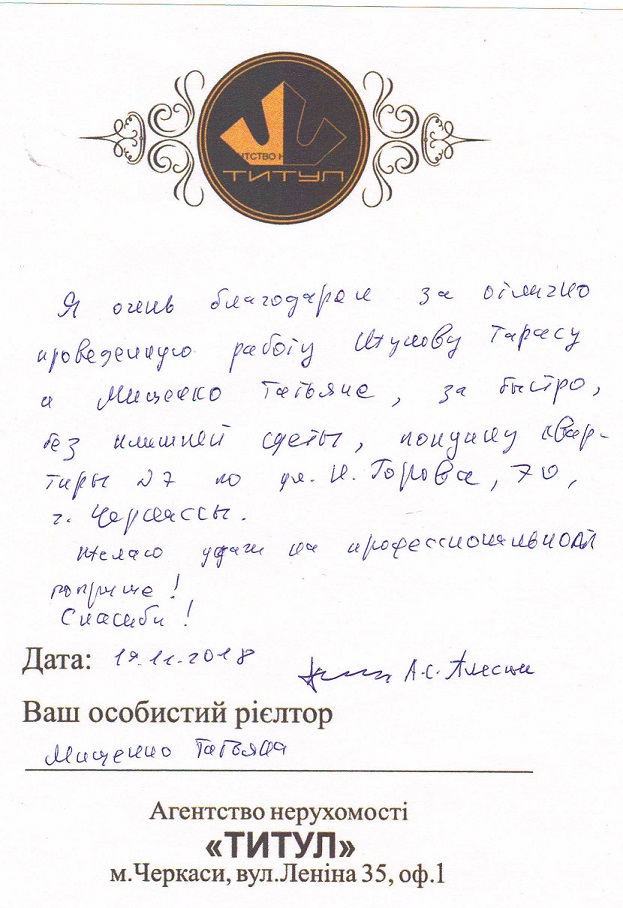 НТСТВО Н
ТИТУЛ
Я очень благодарен за отлично
проведенную работу Тарасу
и Мищенко Татьяне, за быстро,
без лишней суеты, покупку квар-
тиры №7 по ул. Горова, 70,
г. Черкассы.
Желаю удачи на профессиональном
поприще!
Спасибо!
Дата: 19.11.2018 А.С.
Ваш особистий рієлтор
Мищенко Татьяна
Агентство нерухомості
«ТИТУЛ»
м.Черкаси, вул.Леніна 35, оф.1